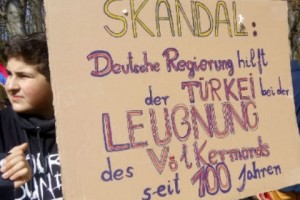 SKANDAL:
Deutsche Regierung hilft
der TÜRKEI bei der
LEUGNUNG
des Völkermords
seit 100 Jahren